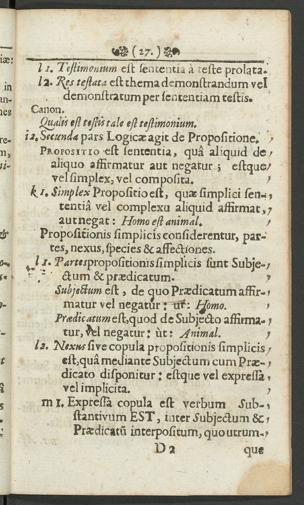 (27.)
l 1. Testimonium est sententia à teste prolata.
l 2. Res testata est thema demonstrandum vel
demonstratum per sententiam testis.
Canon.
Qualis est testis tale est testimonium.
i 2. Secunda pars Logicæ agit de Propositione.
PROPOSITIO est sententia, quâ aliquid de
aliquo affirmatur aut negatur; estque
vel simplex, vel composita.
k 1. Simplex Propositio est, quæ simplici sen-
tentiâ vel complexu aliquid affirmat,
aut negat: Homo est animal.
Propositionis simplicis considerentur, par-
tes, nexus, species & affectiones.
l 1. Partes propositionis simplicis sunt Subje-
ctum & prædicatum.
Subjectum est, de quo Prædicatum affir-
matur vel negatur: ut: Homo.
Prædicatum est, quod de Subjecto affirma-
tur, vel negatur: ùt: Animal.
l 2. Nexus sive copula propositionis simplicis
est, quâ mediante Subjectum cum Præ-
dicato disponitur: estque vel expressa
vel implicita.
m 1. Expressa copula est verbum Sub-
stantivum EST, inter Subjectum &
Prædicatũ interpositum, quo utrum-
D 2 que